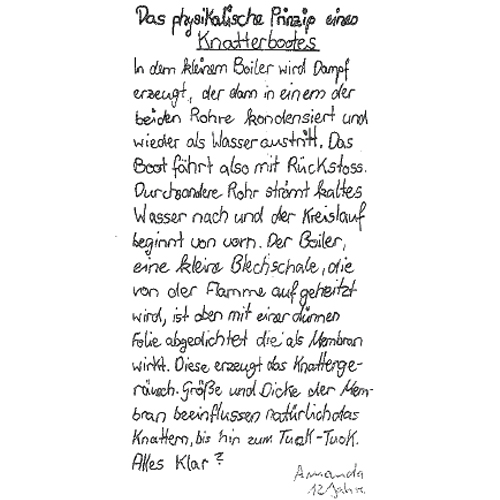 Das physikalische Prinzip eines
Knatterbootes
In dem kleinem Boiler wird Dampf
erzeugt, der dann in einem der
beiden Rohre kondensiert und
wieder als Wasser austritt. Das
Boot fährt also mit Rückstoss.
Durchsandere Rohr strömt kaltes
Wasser nach und der Kreislauf
beginnt von vorn. Der Boiler,
eine kleine Blechschale, die
von der Flamme aufgeheitzt
wird, ist oben mit einer dünnen
Folie abgedichtet die als Membran
wirkt. Diese erzeugt das Knatterge-
räusch. Größe und Dicke der Mem-
bran beeinflussen natürlich das
Knattern, bis hin zum Tuck-Tuck.
Alles Klar?
Amanda
12 Jahre